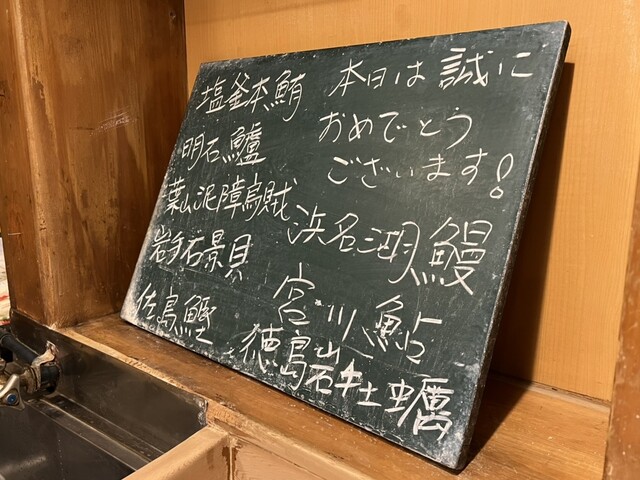 塩釜本鮪
明石鱸
葉山泥障烏賊
岩手石景貝
佐島鰹
本日は誠に
おめでとう
ございます!
浜名湖鰻
宮川鮎
徳島岩牡蠣